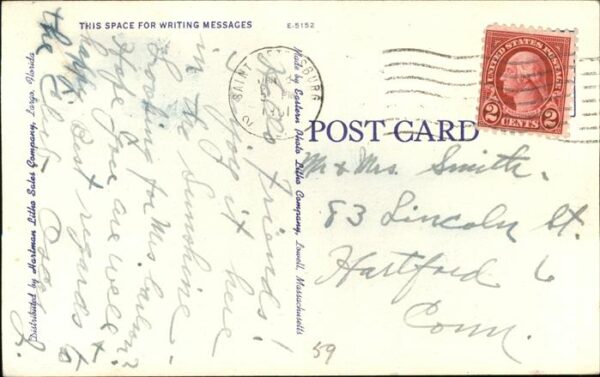 THIS SPACE FOR WRITING MESSAGES
E-5152
Distributed by Hartman Litho Sales Company, Largo, Florida
Made by Eastern Photo Litho Company, Lowell, Massachusetts
SAINT PETERSBURG
UNITED STATES POSTAGE
2 CENTS 2
POST CARD
Mr & Mrs. Smith.
83 Lincoln St.
Hartford 6
Conn.
59
Hello friends!
Enjoy it here
in the Sunshine.
Looking for Mrs.
Hope you are well &
happy. Best regards to
the Club.